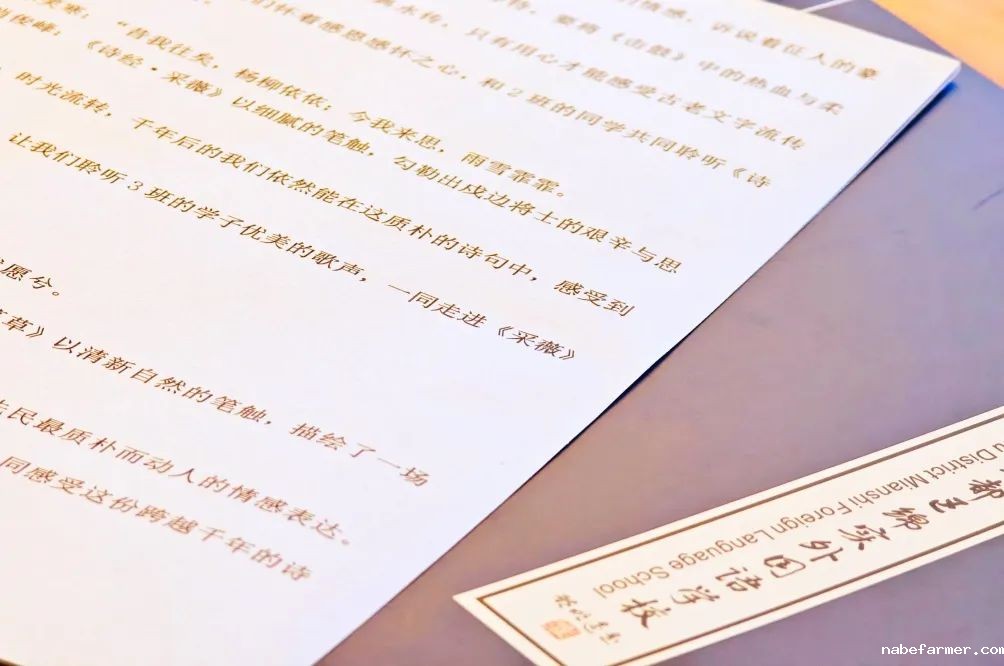 情感，诉说着征人的豪
要将《击鼓》中的热血与柔
只有用心才能感受古老文字流传
们怀着感恩感怀之心，和2班的同学共同聆听《诗
“昔我往矣，杨柳依依；今我来思，雨雪霏霏。
《诗经·采薇》以细腻的笔触，勾勒出戍边将士的艰辛与思
时光流转，千年后的我们依然能在这质朴的诗句中，感受到
让我们聆听3班的学子优美的歌声，一同走进《采薇》
愿兮。
草》以清新自然的笔触，描绘了一场
民最质朴而动人的情感表达。
同感受这份跨越千年的诗
District Mianshi Foreign Language School
都区绵实外国语学校
nabefarmer.com